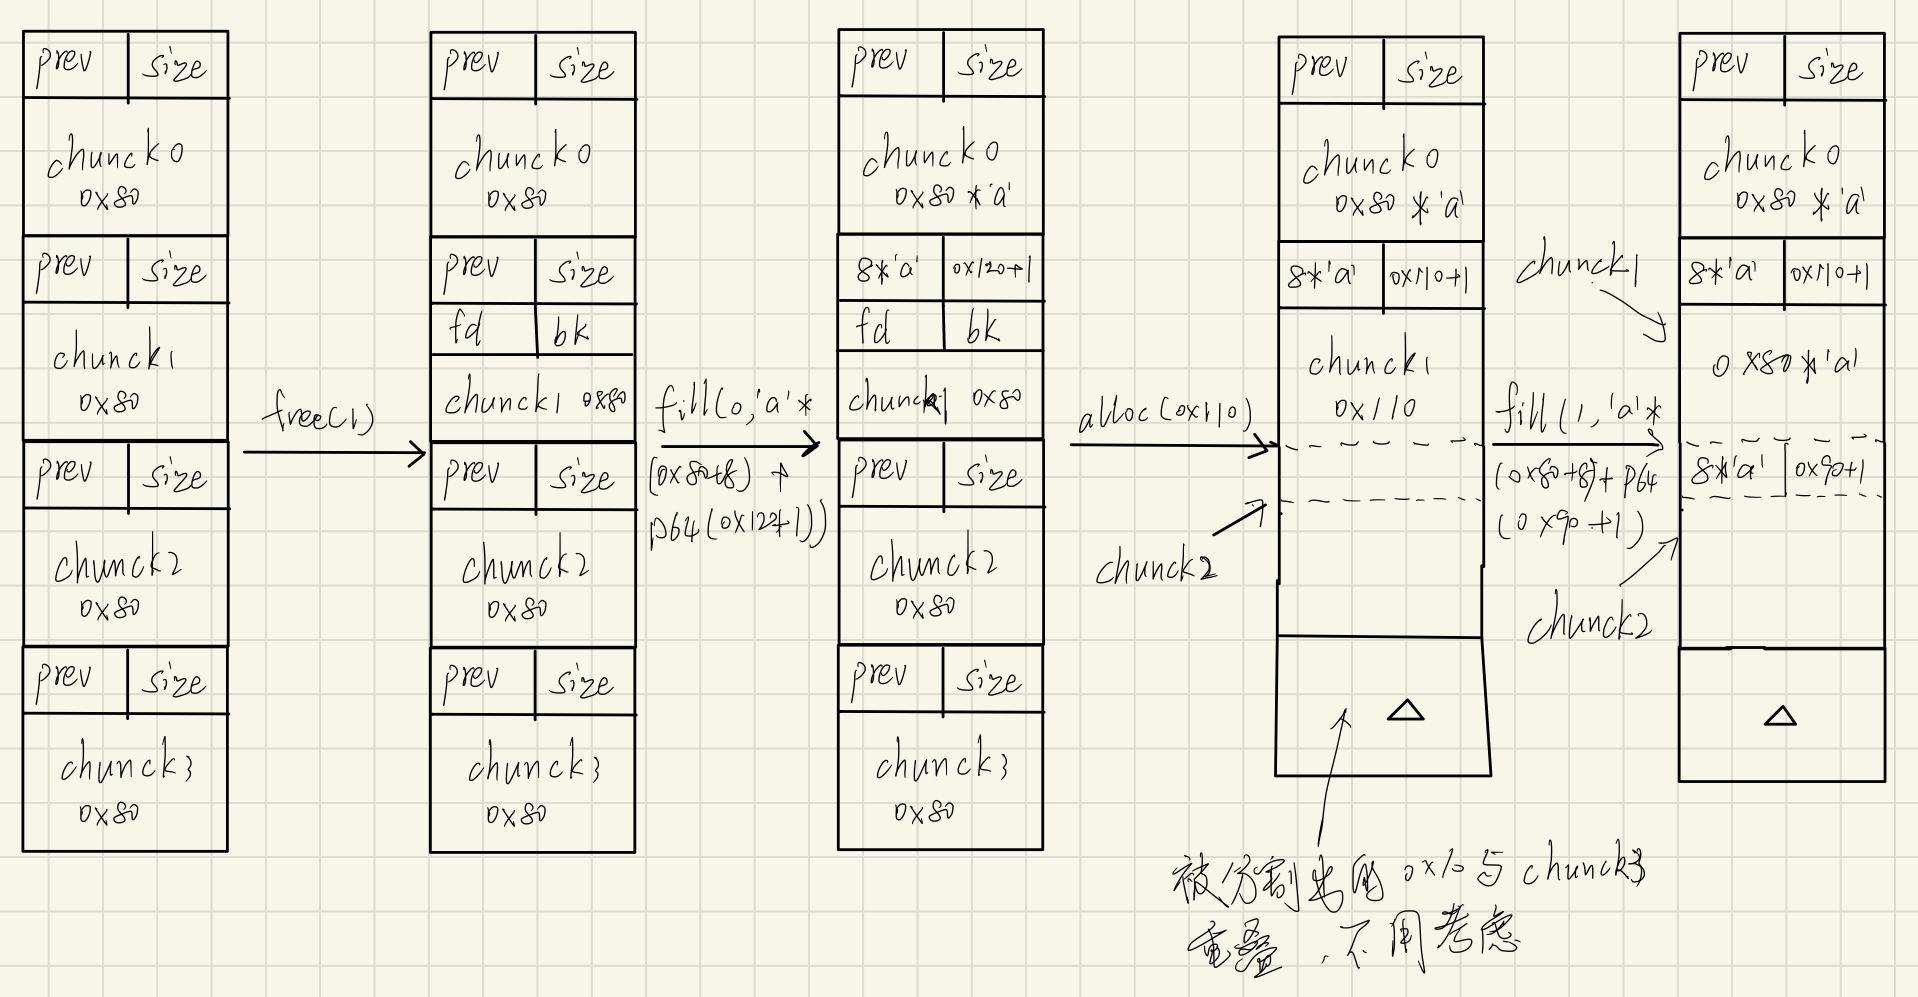 prev size
chunck0
0x80
prev size
chunck1
0x80
prev size
chunck2
0x80
prev size
chunck3
0x80
free(1)
prev size
chunck0
0x80
prev size
fd bk
chunck1 0x80
prev size
chunck2
0x80
prev size
chunck3
0x80
fill(0,'a'*
(0x80+8) +
p64(0x12+1))
prev size
chunck0
0x80*'a'
8*'a' 0x120+1
fd bk
chunck1 0x80
prev size
chunck2
0x80
prev size
chunck3
0x80
alloc(0x110)
chunck2
prev size
chunck0
0x80*'a'
8*'a' 0x110+1
chunck1
0x110
△
被分割出的0x10与chunck3
重叠,不用考虑
fill(1,'a'*
(0x80+8)+p64
(0x90+1)
chunck1
chunck2
prev size
chunck0
0x80*'a'
8*'a' 0x110+1
0x80*'a'
8*'a' 0x90+1
△